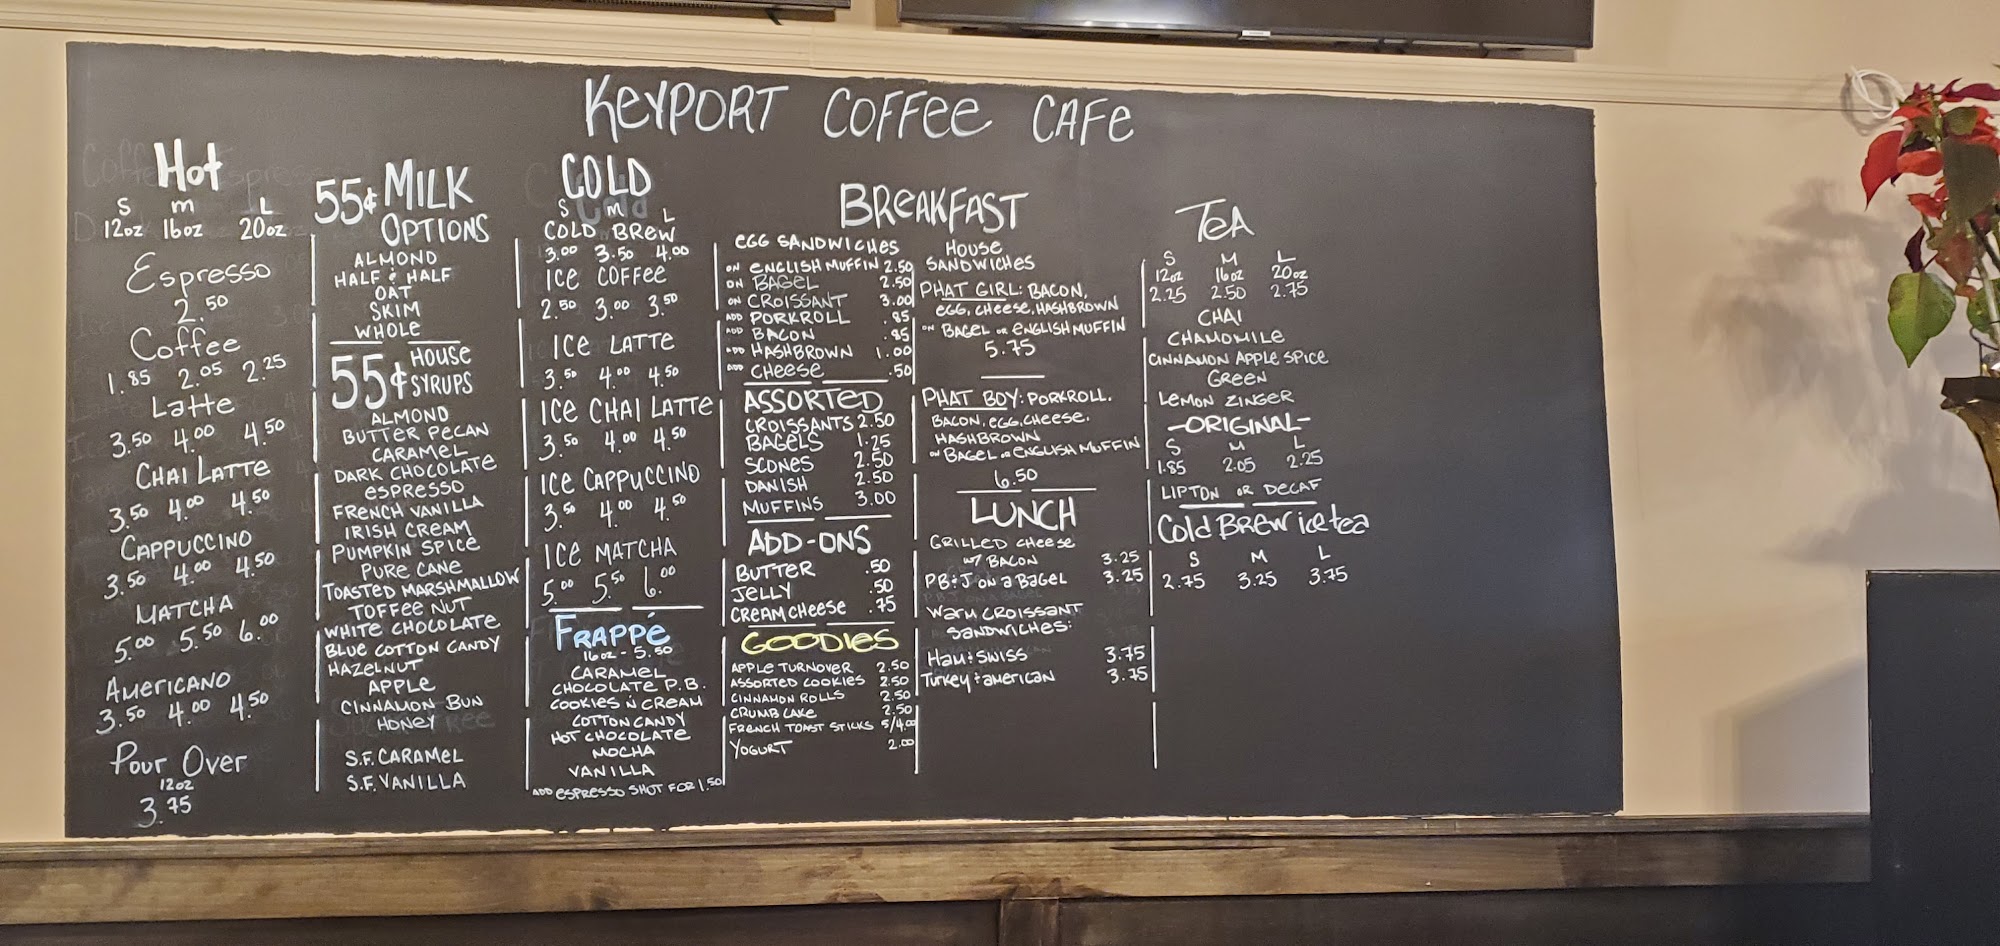 KEYPORT COFFEE CAFE
Hot
S M L
12oz 16oz 20oz
Espresso
2.50
Coffee
1.85 2.05 2.25
Latte
3.50 4.00 4.50
CHAI LATTE
3.50 4.00 4.50
CAPPUCCINO
3.50 4.00 4.50
MATCHA
5.00 5.50 6.00
AMERICANO
3.50 4.00 4.50
Pour Over
12oz
3.75
55¢ MILK
OPTIONS
ALMOND
HALF & HALF
OAT
SKIM
WHOLE
55¢ HOUSE
SYRUPS
ALMOND
BUTTER PECAN
CARAMEL
DARK CHOCOLATE
ESPRESSO
FRENCH VANILLA
IRISH CREAM
PUMPKIN SPICE
PURE CANE
TOASTED MARSHMALLOW
TOFFEE NUT
WHITE CHOCOLATE
BLUE COTTON CANDY
HAZELNUT
APPLE
CINNAMON BUN
HONEY
S.F. CARAMEL
S.F. VANILLA
COLD
S M L
COLD BREW
3.00 3.50 4.00
ICE COFFEE
2.50 3.00 3.50
ICE LATTE
3.50 4.00 4.50
ICE CHAI LATTE
3.50 4.00 4.50
ICE CAPPUCCINO
3.50 4.00 4.50
ICE MATCHA
5.00 5.50 6.00
FRAPPÉ
16oz - 5.50
CARAMEL
CHOCOLATE P.B.
COOKIES N CREAM
COTTON CANDY
HOT CHOCOLATE
MOCHA
VANILLA
ADD ESPRESSO SHOT FOR 1.50
BREAKFAST
EGG SANDWICHES
ON ENGLISH MUFFIN 2.50
ON BAGEL 2.50
ON CROISSANT 3.00
ADD PORKROLL .85
ADD BACON .85
ADD HASHBROWN 1.00
ADD CHEESE .50
ASSORTED
CROISSANTS 2.50
BAGELS 1.25
SCONES 2.50
DANISH 2.50
MUFFINS 3.00
ADD-ONS
BUTTER .50
JELLY .50
CREAM CHEESE .75
GOODIES
APPLE TURNOVER 2.50
ASSORTED COOKIES 2.50
CINNAMON ROLLS 2.50
CRUMB CAKE 2.50
FRENCH TOAST STICKS 5/4.00
YOGURT 2.00
HOUSE
SANDWICHES
PHAT GIRL: BACON,
EGG, CHEESE, HASHBROWN
ON BAGEL OR ENGLISH MUFFIN
5.75
PHAT BOY: PORKROLL,
BACON, EGG, CHEESE,
HASHBROWN
ON BAGEL OR ENGLISH MUFFIN
6.50
LUNCH
GRILLED CHEESE
W/ BACON 3.25
PB+J ON A BAGEL 3.25
WARM CROISSANT
SANDWICHES:
HAM + SWISS 3.75
TURKEY + AMERICAN 3.75
TEA
S M L
12oz 16oz 20oz
2.25 2.50 2.75
CHAI
CHAMOMILE
CINNAMON APPLE SPICE
GREEN
LEMON ZINGER
-ORIGINAL-
S M L
1.85 2.05 2.25
LIPTON OR DECAF
Cold BREW ice tea
S M L
2.75 3.25 3.75